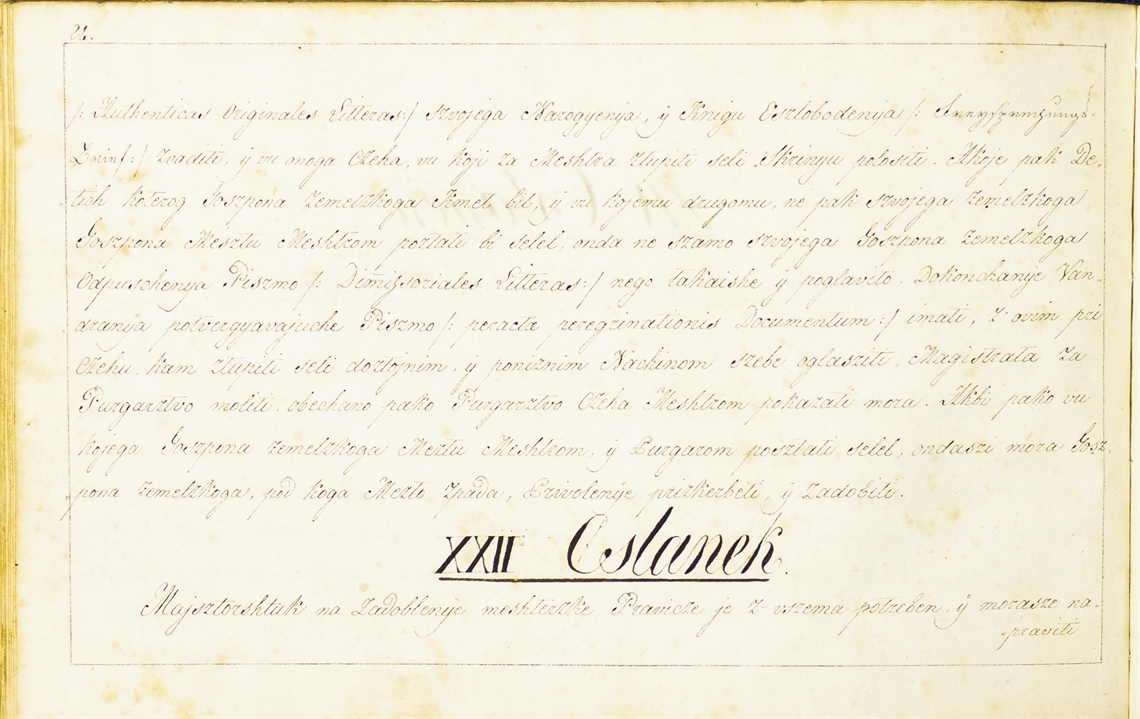 24.
/: Authenticas Originales Litteras:/ szvojega Narogyenja, ÿ Knigu Eszlobodenija /: Freysprechungs-
Brief:/ zvaditi, ÿ vu onoga Czeha, vu koji za Meshtra ztupiti seli Skrinyu polositi. Akoje pak De-
tich koterog Goszpona zemelzkoga Kmet bil, ÿ vu kojemu drugomu, ne pak szvojega zemelzkoga
Goszpona Mesztu Meshtrom posztati bi selel, onda ne szamo szvojega Goszpona zemelzkoga
Odpuschenya Piszmo /: Dimissoriales Litteras:/ nego takaishe ÿ poglavito, Dokonchanye Van-
dranija potvergyavajuche Piszmo /: peracta peregrinationis Documentum:/ imati, z' ovim pri
Czehu, kam ztupiti seli doztojnim, ÿ poniznim Nachinom szebe oglasziti, Magistrata za
Purgarztvo moliti, obechano pako Purgarztvo Czeha Meshtrom pokazati mora. Akbi pako vu
kojega Goszpona zemelzkoga Meztu Meshtrom, ÿ Purgarom posztati selel, ondaszi mora Gosz-
pona zemelzkoga, pod koga Mezto zpada, Privolenije prizkerbeti, ÿ zadobiti.
XXII Cslanek.
Majsztorshtuk na Zadoblenije meshterzke Pravicze je z- vszema potreben, ÿ morasze na-
praviti